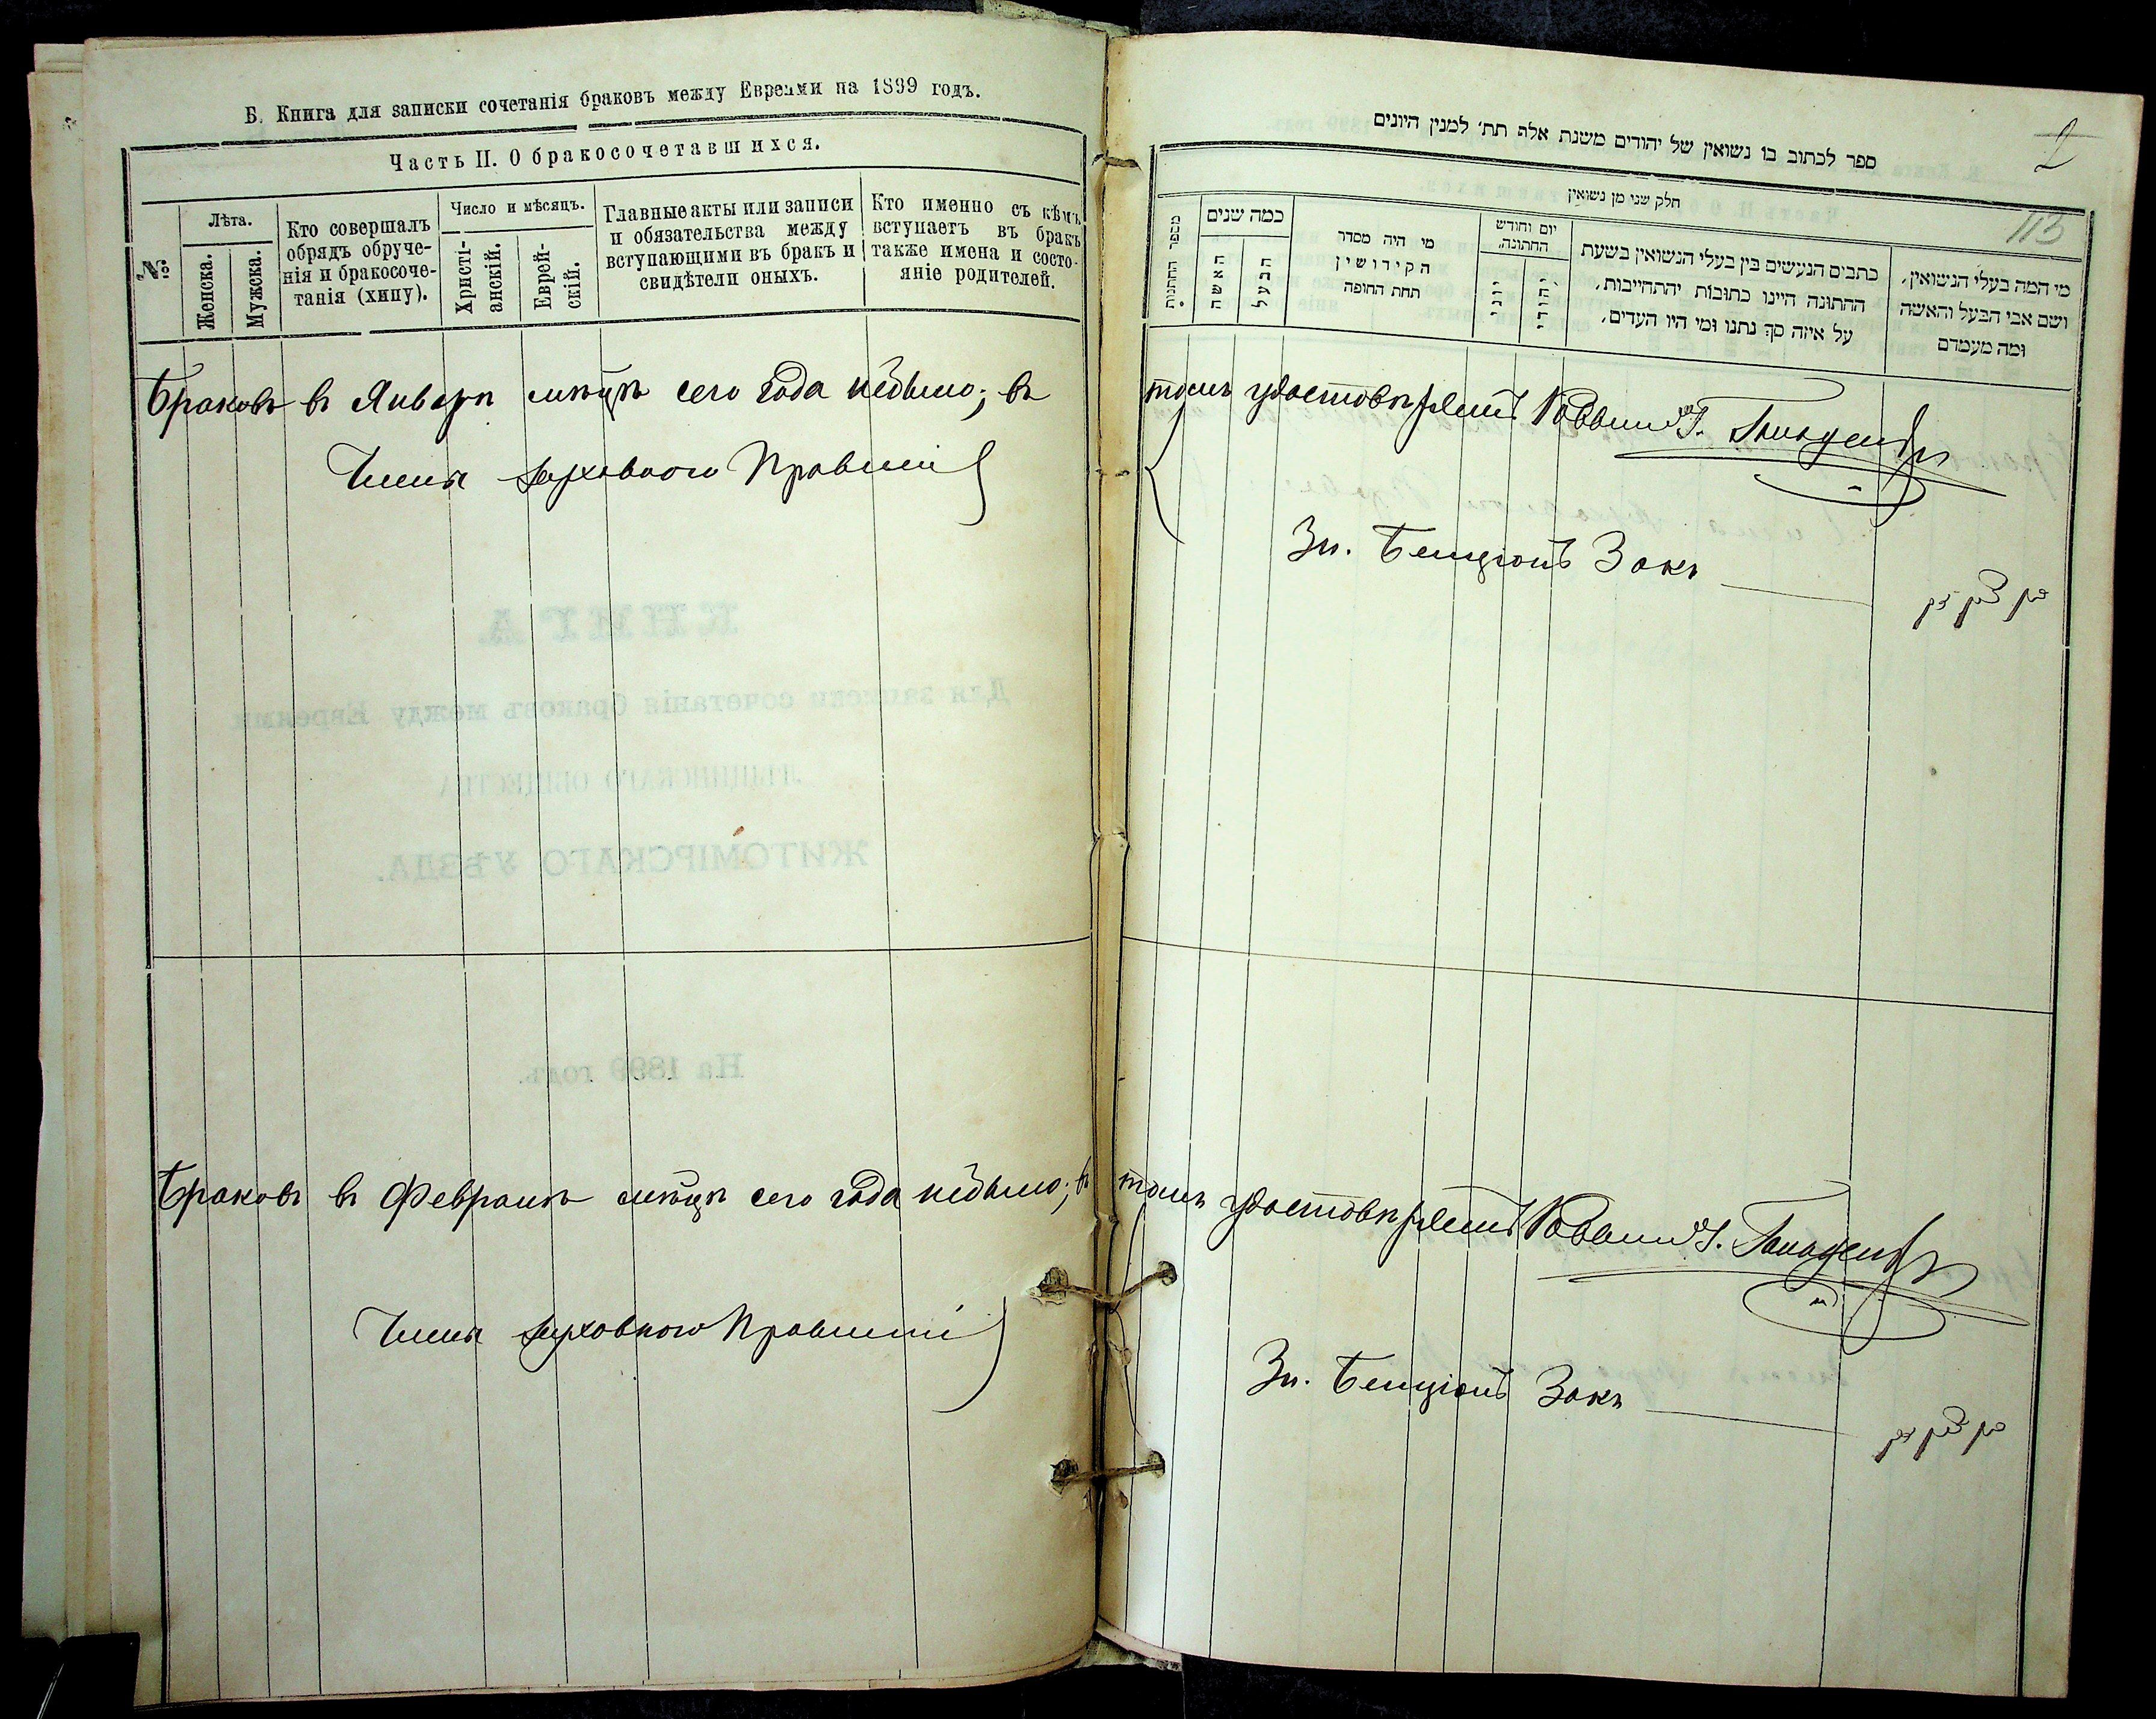 Б. Книга для записки сочетанія браковъ между Евреями на 1899 годъ.
Часть II. О бракосочетавшихся.
№
Лѣта.
Женска.
Мужска.
Кто совершалъ
обрядъ обруче-
нія и бракосоче-
танія (хипу).
Число и мѣсяцъ.
Христі-
анскій.
Еврей-
скій.
Главные акты или записи
и обязательства между
вступающими въ бракъ и
свидѣтели оныхъ.
Кто именно съ кѣмъ
вступаетъ въ бракъ
также имена и состо-
яніе родителей.
Браковъ въ Январѣ мѣцѣ сего года не было; въ
Члены духовного Правленія
Браковъ въ Февралѣ мѣцѣ сего года не было; въ
Члены духовного Правленія
2
113
ספר לכתוב בו נשואין של יהודים משנת אלף תת׳ למנין היונים
חלק שני מן נשואין
מספר החתונות
כמה שנים
האשה
הבעל
מי היה מסדר
הקידושין
תחת החופה
יום וחודש
החתונה.
יוני
יהודי
כתבים הנעשים בין בעלי הנשואין בשעת
החתונה היינו כתובות יהתחייבות,
על איזה סך נתנו ומי היו העדים,
מי המה בעלי הנשואין,
ושם אבי הבעל והאשה
ומה מעמדם
томъ удостовѣряемъ Раввинъ
Зн. Бенціонъ Закъ
בן ציון זק
томъ удостовѣряемъ Раввинъ
Зн. Бенціонъ Закъ
בן ציון זק